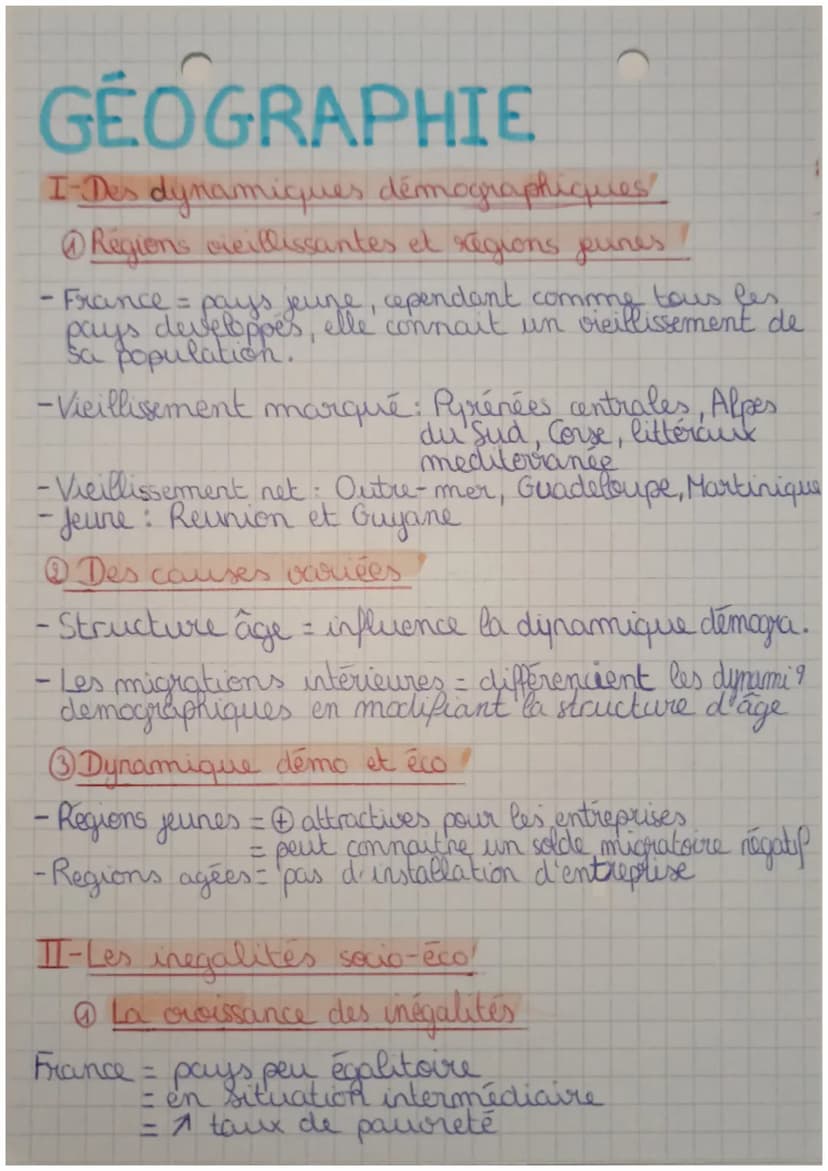 GÉOGRAPHIE
I-Des dynamiques démographiques
① Régions vieillissantes et régions jeunes
- France = pays jeune, cependant comme tous les
pays developpés, elle connait un vieillissement de
sa population.
- Vieillissement marqué : Pyrénées centrales, Alpes
du Sud, Corse, littéraux
mediterranée
- Vieillissement net : Outre-mer, Guadeloupe, Martinique
- Jeune : Reunion et Guyane
② Des causes variées
- Structure âge = influence la dynamique démogra.
- Les migrations intérieures = différencient les dynamiq
demographiques en modifiant la structure d'âge
③ Dynamique démo et éco
- Régions jeunes = ⊕ attractives pour les entreprises
= peut connaitre un solde migratoire négatif
- Regions agées = pas d'installation d'entreprise
II-Les inegalités socio-éco
① La croissance des inégalités
France = pays peu égalitaire
= en situation intermédiaire
= ↗ taux de pauvreté